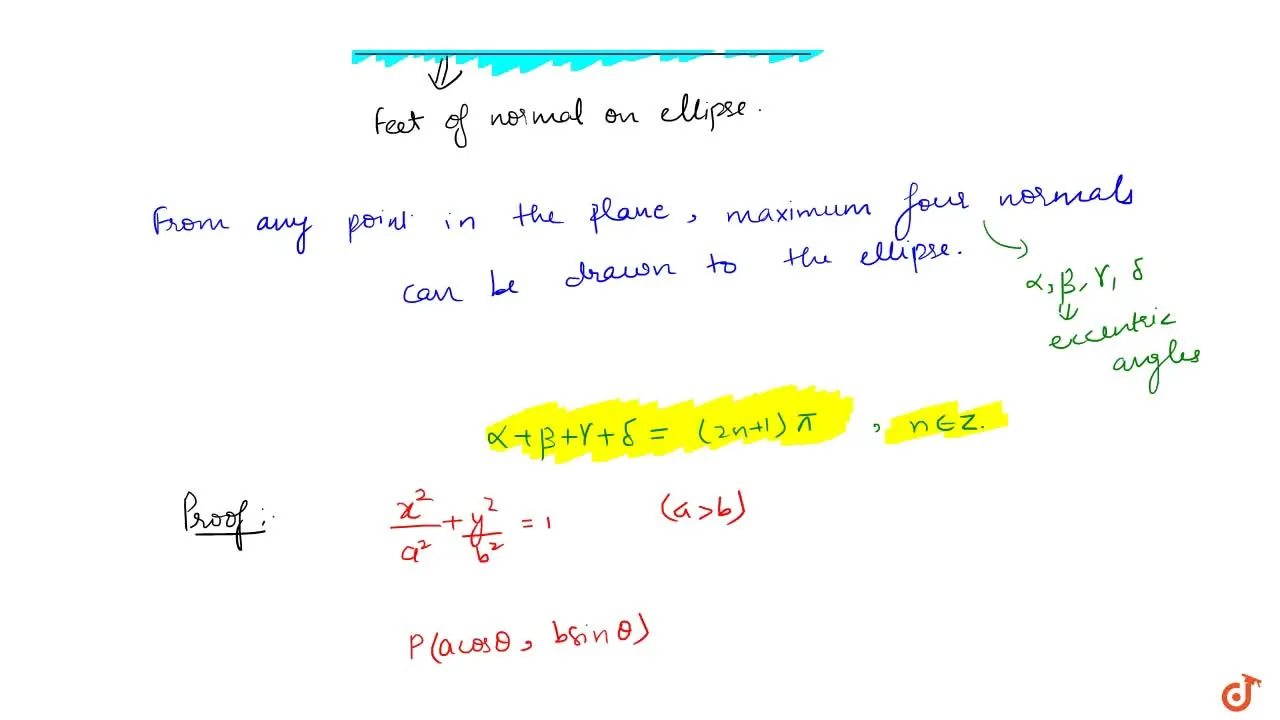 Feet of normal on ellipse.
From any point in the plane, maximum four normals
can be drawn to the ellipse.
α, β, γ, δ
eccentric
angles
α+β+γ+δ = (2n+1)π , n∈Z.
Proof:
x²/a² + y²/b² = 1 (a>b)
P(acosθ, bsinθ)